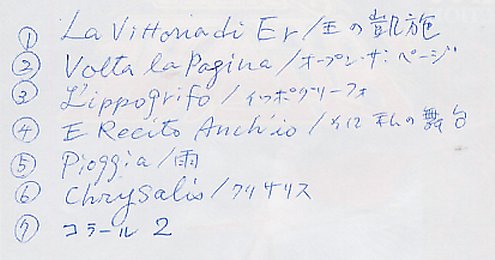 ① La Vittoria di Er/王の凱旋
② Volta la Pagina/オープン・ザ・ページ
③ L'ippogrifo/イッポグリーフォ
④ E Recito Anch'io/それに私の舞台
⑤ Pioggia/雨
⑥ Chrysalis/クリサリス
⑦ コラール 2